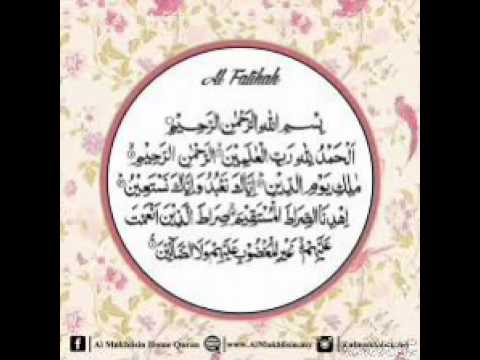 Al Fatihah
بِسْمِ اللهِ الرَّحْمٰنِ الرَّحِيْمِ
اَلْحَمْدُ لِلّٰهِ رَبِّ الْعٰلَمِيْنَ الرَّحْمٰنِ الرَّحِيْمِ
مٰلِكِ يَوْمِ الدِّيْنِ اِيَّاكَ نَعْبُدُ وَاِيَّاكَ نَسْتَعِيْنُ
اِهْدِنَا الصِّرَاطَ الْمُسْتَقِيْمَ صِرَاطَ الَّذِيْنَ اَنْعَمْتَ
عَلَيْهِمْ غَيْرِ الْمَغْضُوْبِ عَلَيْهِمْ وَلَا الضَّآلِّيْنَ
f Al Mukhlisin Home Quran www.AlMukhlisin.my @almukhlisin.my